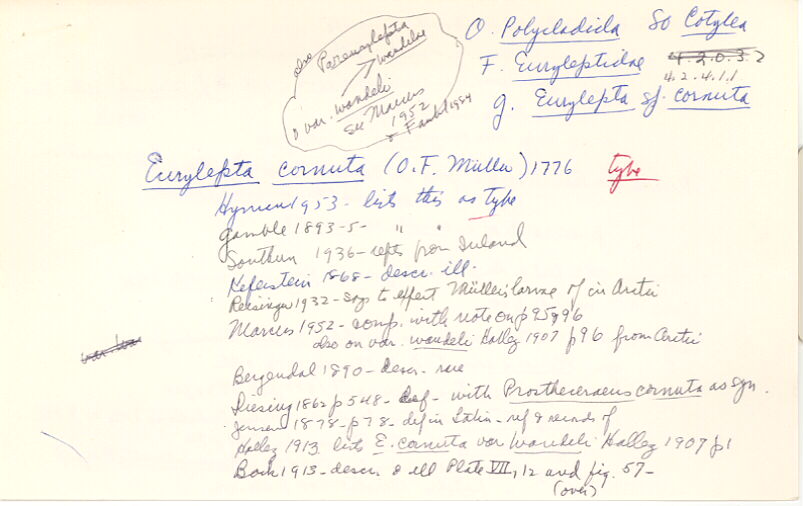 O. Polycladida SO Cotylea
F. Euryleptidae 4.2.0.3.2
4.2.4.1.1
g. Eurylepta sp. cornuta
also Pareurylepta
wandelae
& var. wandeli
see Marcus
1952
& Faubel 1984
Eurylepta cornuta (O.F. Müller) 1776 type
Hyman 1953 - lists this as type
Gamble 1893-5- " "
Southern 1936 - repts from Ireland
Keferstein 1868 - descr. ill.
Reisinger 1932 - says to expect Müller's larvae of in Arctic
Marcus 1952 - comp. with note on p 95 & 96
also on var. wandeli Hallez 1907 p 96 from Arctic
Bergendal 1890 - descr. rare
Diesing 1862 p 548 - def - with Prostheceraeus cornuta as syn.
Jensen 1878 - p 78 - def in Latin - ref & records of
Hallez 1913 lists E. cornuta var Wandeli Hallez 1907 p 1
Bock 1913 - descr. & ill Plate VII, 12 and fig. 57-
(over)